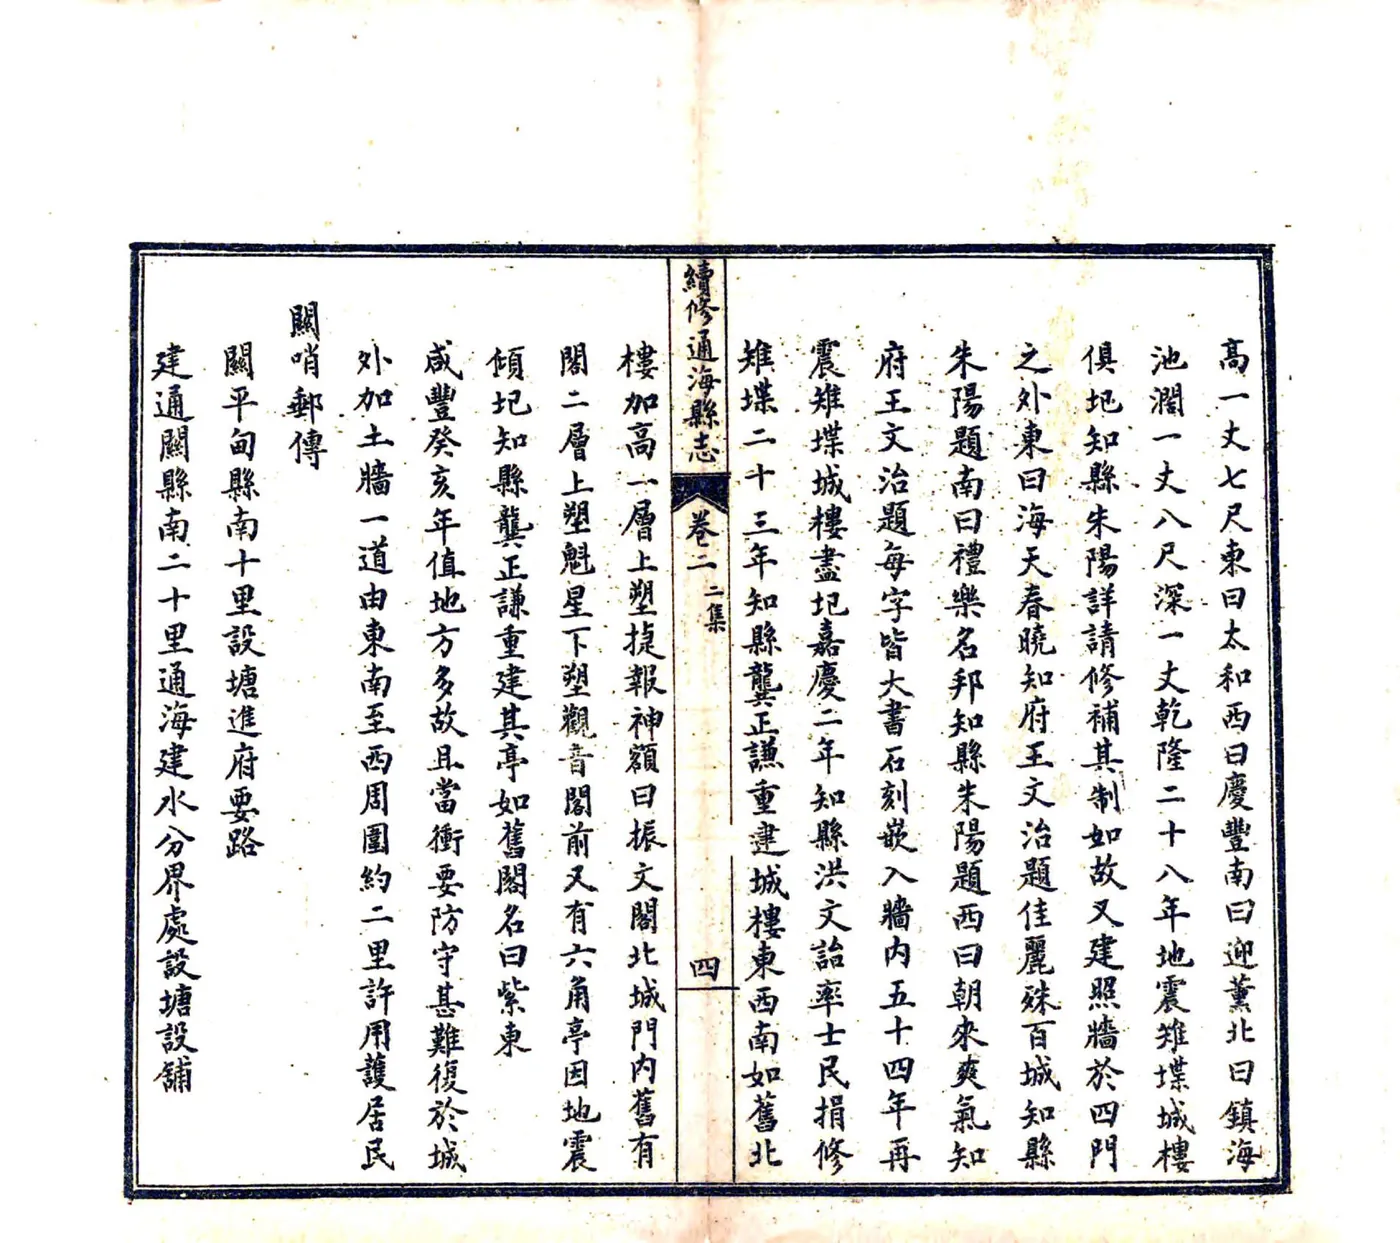 高一丈七尺東曰太和西曰慶豐南曰迎薰北曰鎮海
池濶一丈八尺深一丈乾隆二十八年地震雉堞城樓
俱圮知縣朱陽詳請修補其制如故又建照牆於四門
之外東曰海天春曉知府王文治題佳麗殊百城知縣
朱陽題南曰禮樂名邦知縣朱陽題西曰朝來爽氣知
府王文治題每字皆大書石刻嵌入牆内五十四年再
震雉堞城樓盡圮嘉慶二年知縣洪文詒率士民捐修
雉堞二十三年知縣龔正謙重建城樓東西南如舊北
續修通海縣志 卷二 二集 四
樓加高一層上塑捷報神額曰振文閣北城門内舊有
閣二層上塑魁星下塑觀音閣前又有六角亭因地震
傾圮知縣龔正謙重建其亭如舊閣名曰紫東
咸豐癸亥年值地方多故且當衝要防守甚難復於城
外加土牆一道由東南至西周圍約二里許用護居民
關哨郵傳
關平甸縣南十里設塘進府要路
建通關縣南二十里通海建水分界處設塘設舖